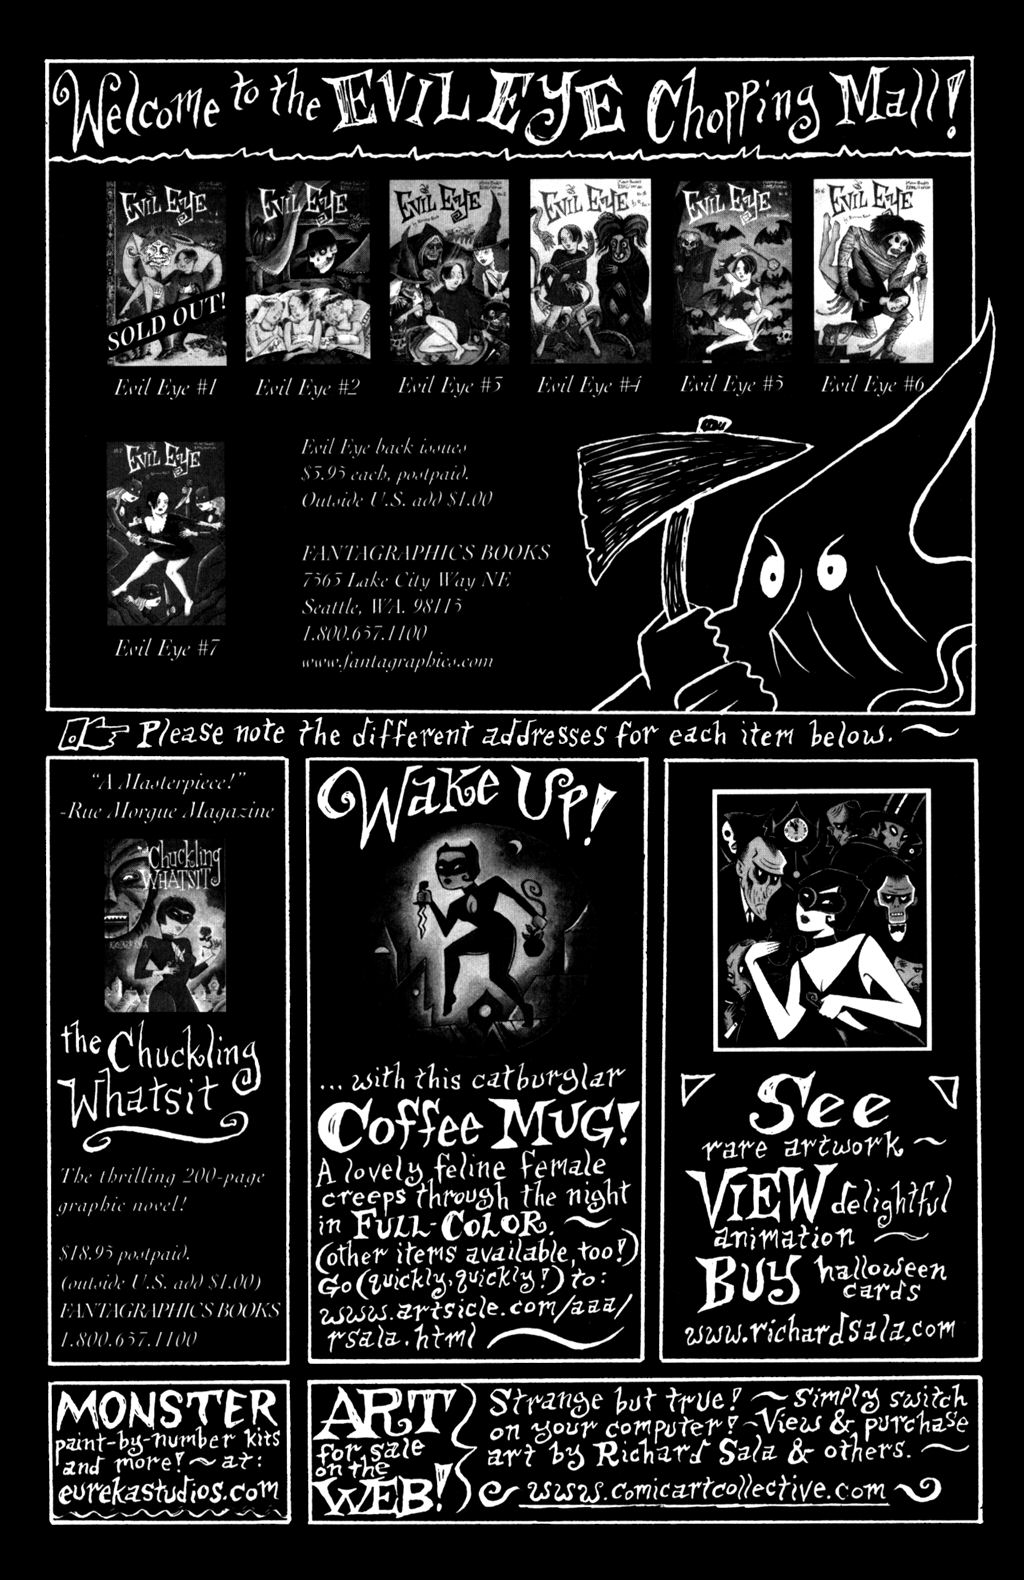 Welcome to the EVIL EYE Chopping Mall!
EVIL EYE
EVIL EYE
EVIL EYE
EVIL EYE
EVIL EYE
EVIL EYE
SOLD OUT!
Evil Eye #1
Evil Eye #2
Evil Eye #3
Evil Eye #4
Evil Eye #5
Evil Eye #6
EVIL EYE
Evil Eye #7
Evil Eye back issues
$5.95 each, postpaid.
Outside U.S. add $1.00
FANTAGRAPHICS BOOKS
7563 Lake City Way NE
Seattle, WA. 98115
1.800.657.1100
www.fantagraphics.com
Please note the different addresses for each item below.
"A Masterpiece!"
-Rue Morgue Magazine
the Chuckling
WHATSIT
the Chuckling
Whatsit
The thrilling 200-page
graphic novel!
$18.95 postpaid.
(outside U.S. add $1.00)
FANTAGRAPHICS BOOKS
1.800.657.1100
WAKE UP!
... with this catburglar
COFFEE MUG!
A lovely feline female
creeps through the night
in FULL-COLOR.
(other items available, too!)
Go (quickly, quickly!) to:
www.artsicle.com/aaa/
rsala.html
SEE
rare artwork
VIEW delightful
animation
BUY halloween
cards
www.richardsala.com
MONSTER
paint-by-number kits
and more! ~ at:
eurekastudios.com
ART
for sale
on the
WEB!
Strange but true! ~ Simply switch
on your computer! ~ View & purchase
art by Richard Sala & others.
www.comicartcollective.com